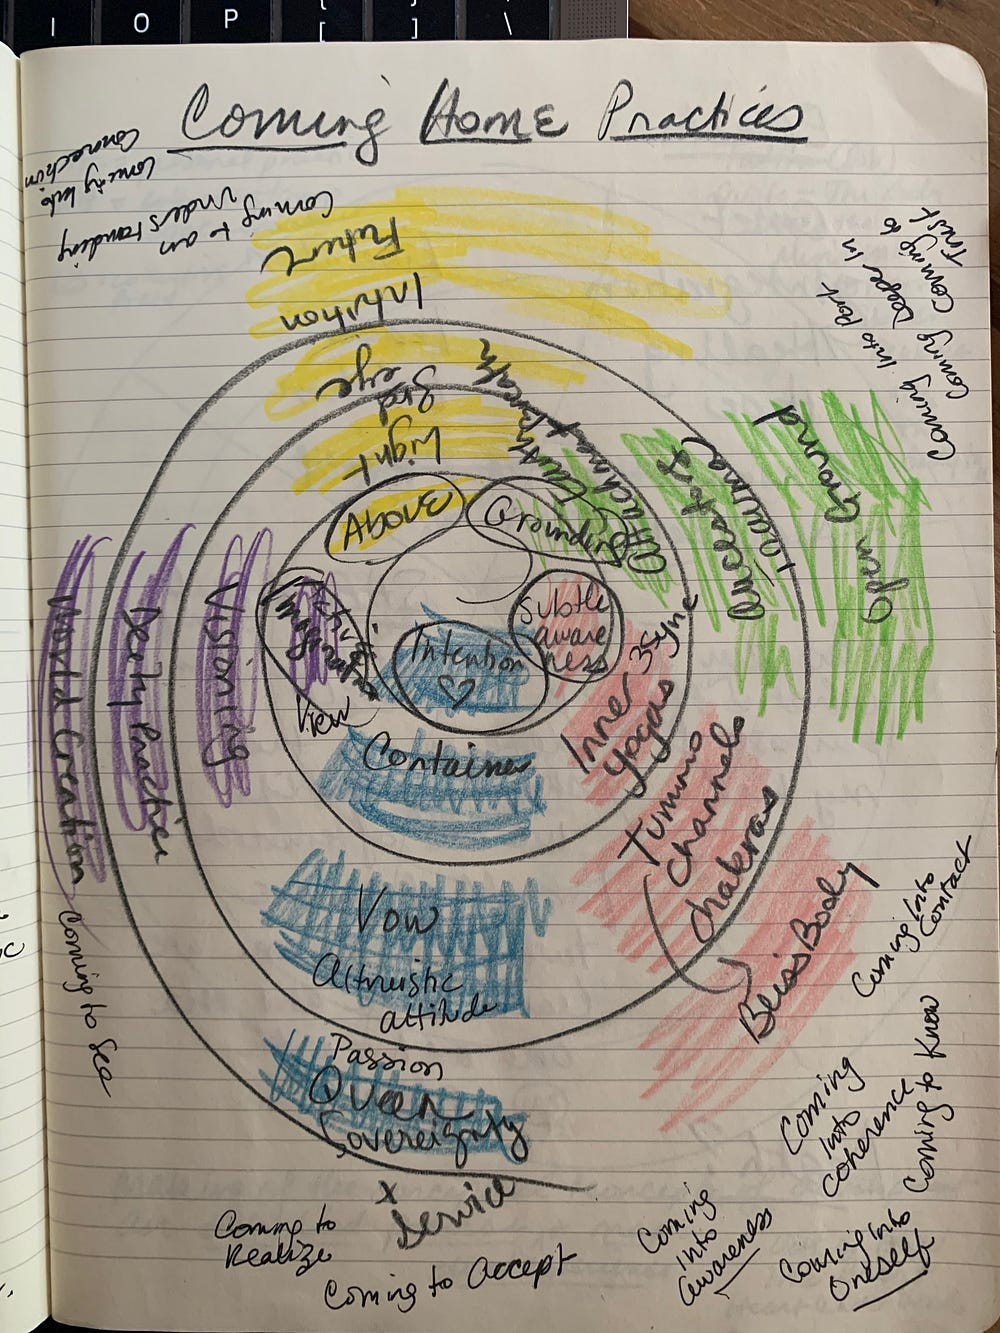 I O P [ ] \
Coming Home Practices
Coming into
Connection
Coming to an
Understanding
Coming Into Port
Coming Deeper In
Coming to
Trust
Future
Intuition
3rd
eye
Light
Above
Grounding
Earth Breath
Attachment
Nuceators
Trauma
Ground
Open
Subtle
aware
ness
3Syne
Inner
yogas
Tummo
Channels
Chakras
Bliss Body
Intention
♡
Container
Vow
Altruistic
attitude
Passion
Queen
Sovereignty
+
Service
View
Visioning
Deity Practice
World Creation
Coming to See
Coming Into
Contact
Coming to Know
Coming
Into
Coherence
Coming into
Oneself
Coming
into
awareness
Coming to
Realize
Coming to Accept